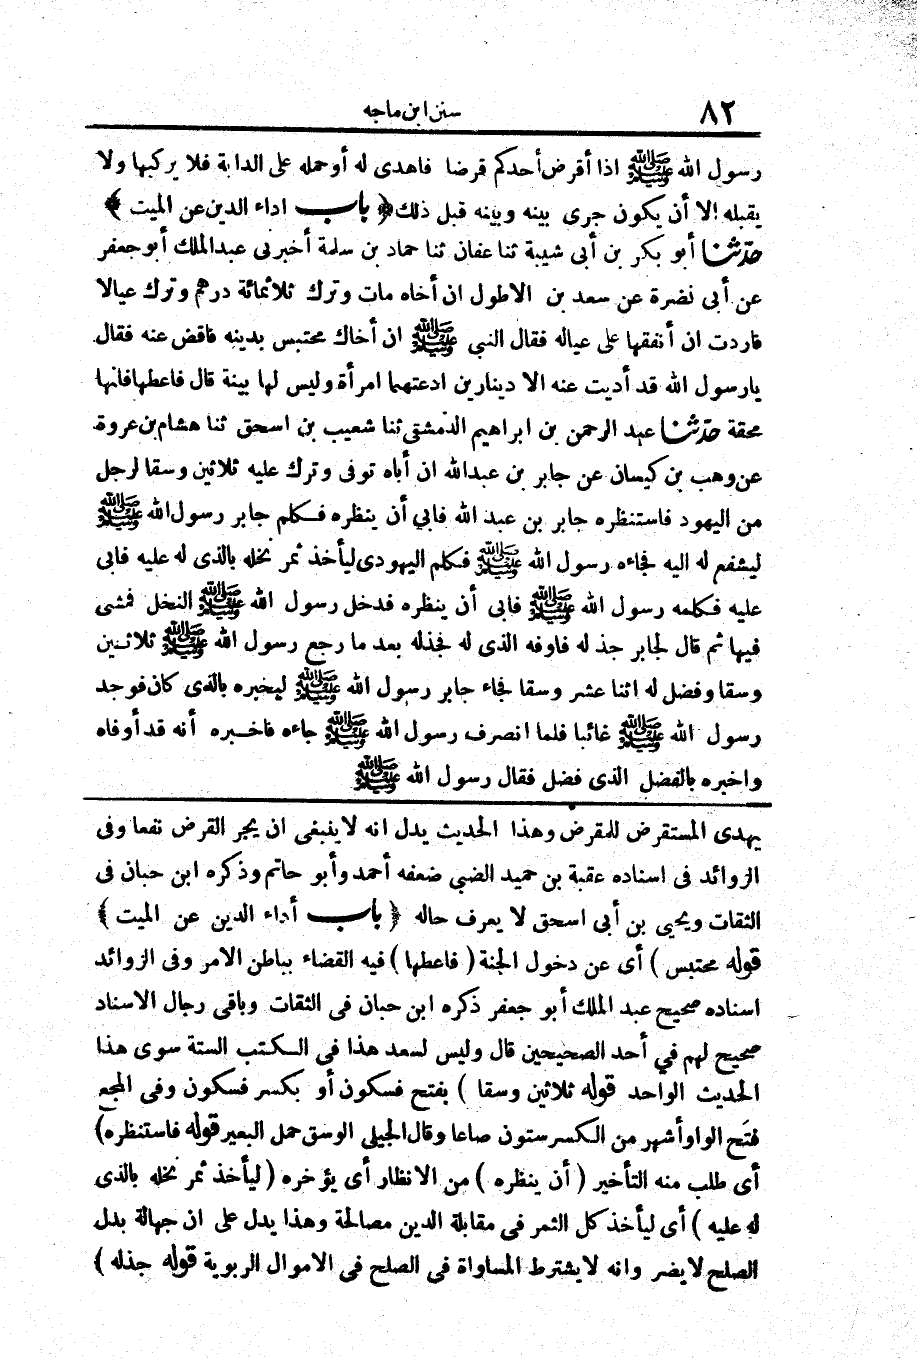 ٨٢
سنن ابن ماجه
رسول الله ﷺ اذا أقرض أحدكم قرضا فاهدى له أو حمله على الدابة فلا يركبها ولا
يقبله الا أن يكون جرى بينه وبينه قبل ذلك ﴿ باب اداء الدين عن الميت ﴾
حدّثنا أبو بكر بن أبى شيبة ثنا عفان ثنا حماد بن سلمة أخبرنى عبدالملك أبو جعفر
عن أبى نضرة عن سعد بن الاطول ان أخاه مات وترك ثلاثمائة درهم وترك عيالا
فاردت ان أنفقها على عياله فقال النبي ﷺ ان أخاك محتبس بدينه فاقض عنه فقال
يارسول الله قد أديت عنه الا دينارين ادعتهما امرأة وليس لها بينة قال فاعطها فانها
محقة حدّثنا عبد الرحمن بن ابراهيم الدمشقى ثنا شعيب بن اسحق ثنا هشام بن عروة
عن وهب بن كيسان عن جابر بن عبدالله ان أباه توفى وترك عليه ثلاثين وسقا لرجل
من اليهود فاستنظره جابر بن عبد الله فابي أن ينظره فكلم جابر رسول الله ﷺ
ليشفع له اليه فجاءه رسول الله ﷺ فكلم اليهودى ليأخذ ثمر نخله بالذى له عليه فابى
عليه فكلمه رسول الله ﷺ فابى أن ينظره فدخل رسول الله ﷺ النخل فمشى
فيها ثم قال لجابر جذ له فاوفه الذى له فجذله بعد ما رجع رسول الله ﷺ ثلاثين
وسقا وفضل له اثنا عشر وسقا فجاء جابر رسول الله ﷺ ليخبره بالذى كان فوجد
رسول الله ﷺ غائبا فلما انصرف رسول الله ﷺ جاءه فاخبره أنه قد أوفاه
واخبره بالفضل الذى فضل فقال رسول الله ﷺ
يهدى المستقرض للمقرض وهذا الحديث يدل انه لا ينبغى ان يجر القرض نفعا وفى
الزوائد فى اسناده عقبة بن حميد الضبى ضعفه أحمد وأبو حاتم وذكره ابن حبان فى
الثقات ويحيى بن أبى اسحق لا يعرف حاله ﴿ باب أداء الدين عن الميت ﴾
قوله محتبس ) أى عن دخول الجنة ( فاعطها ) فيه القضاء بباطن الامر وفى الزوائد
اسناده صحيح عبد الملك أبو جعفر ذكره ابن حبان فى الثقات وباقى رجال الاسناد
صحيح لهم في أحد الصحيحين قال وليس لسعد هذا فى الكتب الستة سوى هذا
الحديث الواحد قوله ثلاثين وسقا ) بفتح فسكون أو بكسر فسكون وفى المجمع
فتح الواو أشهر من الكسر ستون صاعا وقال الجيلى الوسق حمل البعير قوله فاستنظره)
أى طلب منه التأخير ( أن ينظره ) من الانظار أى يؤخره ( ليأخذ ثمر نخله بالذى
له عليه ) أى ليأخذ كل الثمر فى مقابلة الدين مصالحة وهذا يدل على ان جهالة بدل
الصلح لا يضر وانه لا يشترط المساواة فى الصلح فى الاموال الربوية قوله جذله )